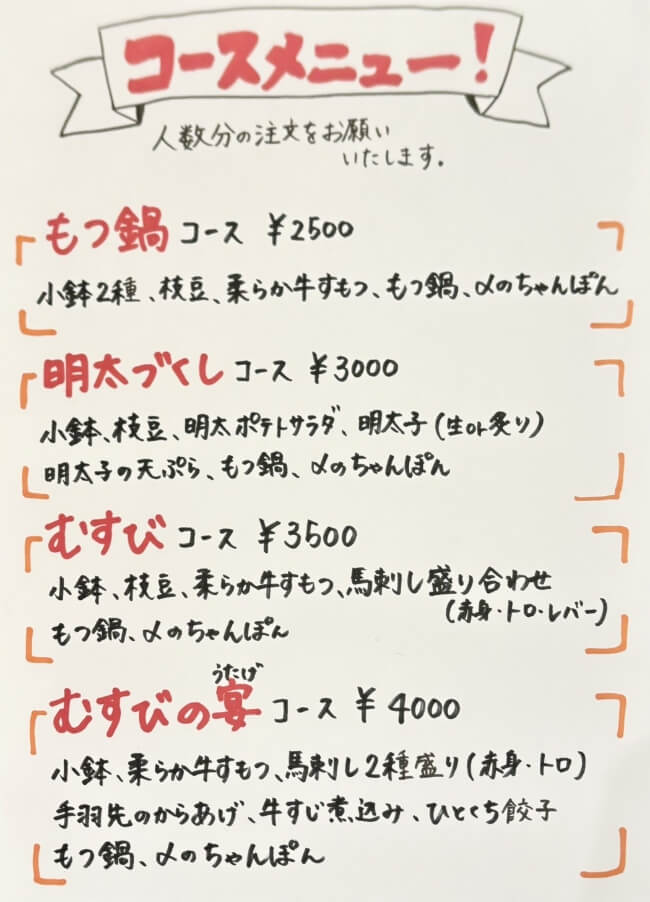 コースメニュー!
人数分の注文をお願い
いたします.
もつ鍋 コース ¥2500
小鉢2種、枝豆、柔らか牛すもつ、もつ鍋、〆のちゃんぽん
明太づくし コース ¥3000
小鉢、枝豆、明太ポテトサラダ、明太子(生or炙り)
明太子の天ぷら、もつ鍋、〆のちゃんぽん
むすび コース ¥3500
小鉢、枝豆、柔らか牛すもつ、馬刺し盛り合わせ
(赤身・トロ・レバー)
もつ鍋、〆のちゃんぽん
うたげ
むすびの宴 コース ¥4000
小鉢、柔らか牛すもつ、馬刺し2種盛り(赤身・トロ)
手羽先のからあげ、牛すじ煮込み、ひとくち餃子
もつ鍋、〆のちゃんぽん